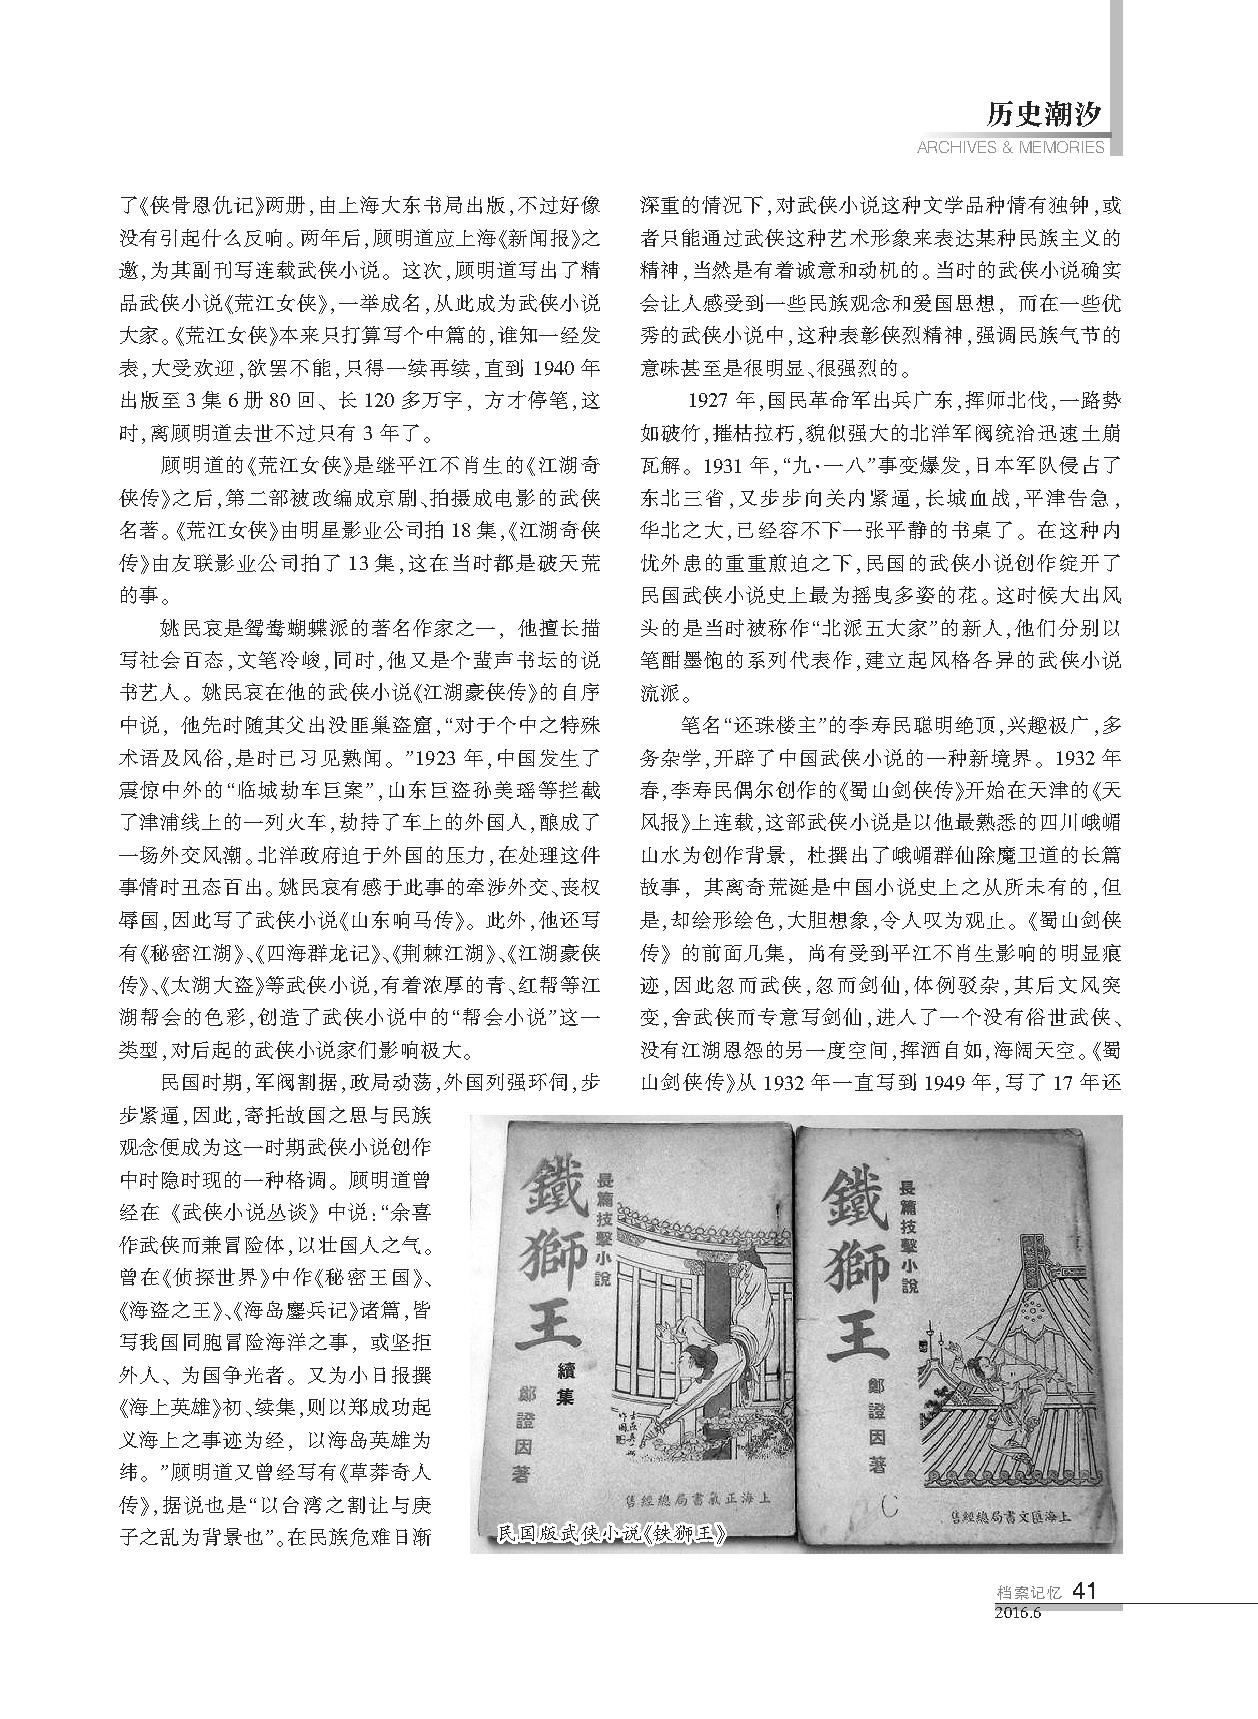 历史潮汐
ARCHIVES & MEMORIES
了《侠骨恩仇记》两册,由上海大东书局出版,不过好像
没有引起什么反响。两年后,顾明道应上海《新闻报》之
邀,为其副刊写连载武侠小说。这次,顾明道写出了精
品武侠小说《荒江女侠》,一举成名,从此成为武侠小说
大家。《荒江女侠》本来只打算写个中篇的,谁知一经发
表,大受欢迎,欲罢不能,只得一续再续,直到 1940 年
出版至 3 集 6 册 80 回、长 120 多万字，方才停笔,这
时,离顾明道去世不过只有 3 年了。
顾明道的《荒江女侠》是继平江不肖生的《江湖奇
侠传》之后,第二部被改编成京剧、拍摄成电影的武侠
名著。《荒江女侠》由明星影业公司拍 18 集,《江湖奇侠
传》由友联影业公司拍了 13 集,这在当时都是破天荒
的事。
姚民哀是鸳鸯蝴蝶派的著名作家之一，他擅长描
写社会百态,文笔冷峻,同时,他又是个蜚声书坛的说
书艺人。姚民哀在他的武侠小说《江湖豪侠传》的自序
中说，他先时随其父出没匪巢盗窟,“对于个中之特殊
术语及风俗,是时已习见熟闻。”1923 年,中国发生了
震惊中外的“临城劫车巨案”,山东巨盗孙美瑶等拦截
了津浦线上的一列火车,劫持了车上的外国人,酿成了
一场外交风潮。北洋政府迫于外国的压力,在处理这件
事情时丑态百出。姚民哀有感于此事的牵涉外交、丧权
辱国,因此写了武侠小说《山东响马传》。此外,他还写
有《秘密江湖》、《四海群龙记》、《荆棘江湖》、《江湖豪侠
传》、《太湖大盗》等武侠小说,有着浓厚的青、红帮等江
湖帮会的色彩,创造了武侠小说中的“帮会小说”这一
类型,对后起的武侠小说家们影响极大。
民国时期,军阀割据,政局动荡,外国列强环伺,步
步紧逼,因此,寄托故国之思与民族
观念便成为这一时期武侠小说创作
中时隐时现的一种格调。顾明道曾
经在《武侠小说丛谈》中说:“余喜
作武侠而兼冒险体,以壮国人之气。
曾在《侦探世界》中作《秘密王国》、
《海盗之王》、《海岛鏖兵记》诸篇,皆
写我国同胞冒险海洋之事，或坚拒
外人、为国争光者。又为小日报撰
《海上英雄》初、续集,则以郑成功起
义海上之事迹为经，以海岛英雄为
纬。”顾明道又曾经写有《草莽奇人
传》,据说也是“以台湾之割让与庚
子之乱为背景也”。在民族危难日渐
深重的情况下,对武侠小说这种文学品种情有独钟,或
者只能通过武侠这种艺术形象来表达某种民族主义的
精神,当然是有着诚意和动机的。当时的武侠小说确实
会让人感受到一些民族观念和爱国思想，而在一些优
秀的武侠小说中,这种表彰侠烈精神,强调民族气节的
意味甚至是很明显、很强烈的。
1927 年,国民革命军出兵广东,挥师北伐,一路势
如破竹,摧枯拉朽,貌似强大的北洋军阀统治迅速土崩
瓦解。1931 年,“九·一八”事变爆发,日本军队侵占了
东北三省,又步步向关内紧逼,长城血战,平津告急,
华北之大,已经容不下一张平静的书桌了。在这种内
忧外患的重重煎迫之下,民国的武侠小说创作绽开了
民国武侠小说史上最为摇曳多姿的花。这时候大出风
头的是当时被称作“北派五大家”的新人,他们分别以
笔酣墨饱的系列代表作,建立起风格各异的武侠小说
流派。
笔名“还珠楼主”的李寿民聪明绝顶,兴趣极广,多
务杂学,开辟了中国武侠小说的一种新境界。1932 年
春,李寿民偶尔创作的《蜀山剑侠传》开始在天津的《天
风报》上连载,这部武侠小说是以他最熟悉的四川峨嵋
山水为创作背景，杜撰出了峨嵋群仙除魔卫道的长篇
故事，其离奇荒诞是中国小说史上之从所未有的,但
是,却绘形绘色,大胆想象,令人叹为观止。《蜀山剑侠
传》的前面几集，尚有受到平江不肖生影响的明显痕
迹,因此忽而武侠,忽而剑仙,体例驳杂,其后文风突
变,舍武侠而专意写剑仙,进入了一个没有俗世武侠、
没有江湖恩怨的另一度空间,挥洒自如,海阔天空。《蜀
山剑侠传》从 1932 年一直写到 1949 年,写了 17 年还
鐵獅王
長篇技擊小說
續集
鄭證因著
售經總局書氣正海上
鐵獅王
長篇技擊小說
鄭證因著
售經總局書文匯海上
民国版武侠小说《铁狮王》
档案记忆 41
2016.6